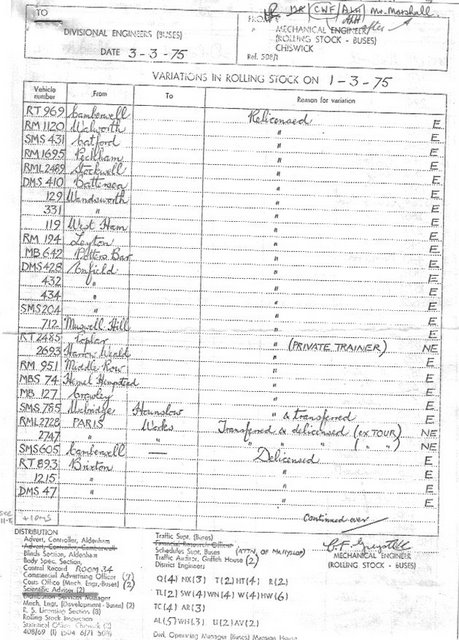 TO
DIVISIONAL ENGINEERS (BUSES)
DATE 3-3-75
FROM
DA CWF ALH Mr. Marshall.
after
MECHANICAL ENGINEER
(ROLLING STOCK - BUSES)
CHISWICK
Ref. 508/1
VARIATIONS IN ROLLING STOCK ON 1-3-75
Vehicle number From To Reason for variation
RT 969 Camberwell Relicensed E
RM 1120 Walworth " E
SMS 431 Catford " E
RM 1695 Peckham " E
RML 2489 Stockwell " E
DMS 410 Battersea " E
129 Wandsworth " E
331 " " E
119 West Ham " E
RM 194 Leyton " E
MB 642 Potters Bar " E
DMS 428 Enfield " E
432 " " E
434 " " E
SMS 204 " " E
712 Muswell Hill " E
RT 2485 Poplar " (PRIVATE TRAINER) NE
2693 Harrow Weald " NE
RM 951 Middle Row " E
MBS 74 Hemel Hempstead " E
MB 127 Crawley " E
SMS 785 Uxbridge Hounslow " & transferred E
RML 2728 PARIS Works Transferred & delicensed (ex TOUR) NE
2747 " " " " " ( " " ) NE
SMS 605 Camberwell — Delicensed E
RT 893 Brixton " E
1215 " " E
DMS 47 " " E
Continued over
DISTRIBUTION
Advert. Controller, Aldenham
Advert. Controller, Camberwell
Blinds Section, Aldenham
Body Spec. Section,
Control Record ROOM 34
Commercial Advertising Officer (7)
Costs Office (Mech. Engr. Buses) (2)
Scientific Advisor (2)
Mech. Engr. (Development - Buses) (2)
R. S. Licensing Section (3)
Rolling Stock Inspection
Traffic Supt. (Buses)
Schedules Supt. Buses
Traffic Auditor, Griffith House (2)
District Engineers
Q(4) NX(3) T(2) HT(4) R(2)
TL(2) SW(4) WN(4) W(4) HW(6)
TC(4) AR(3)
AL(5) WH(3) U(2) AV(2)
Divl. Operating Manager (Buses) Mansion House
MECHANICAL ENGINEER
(ROLLING STOCK - BUSES)